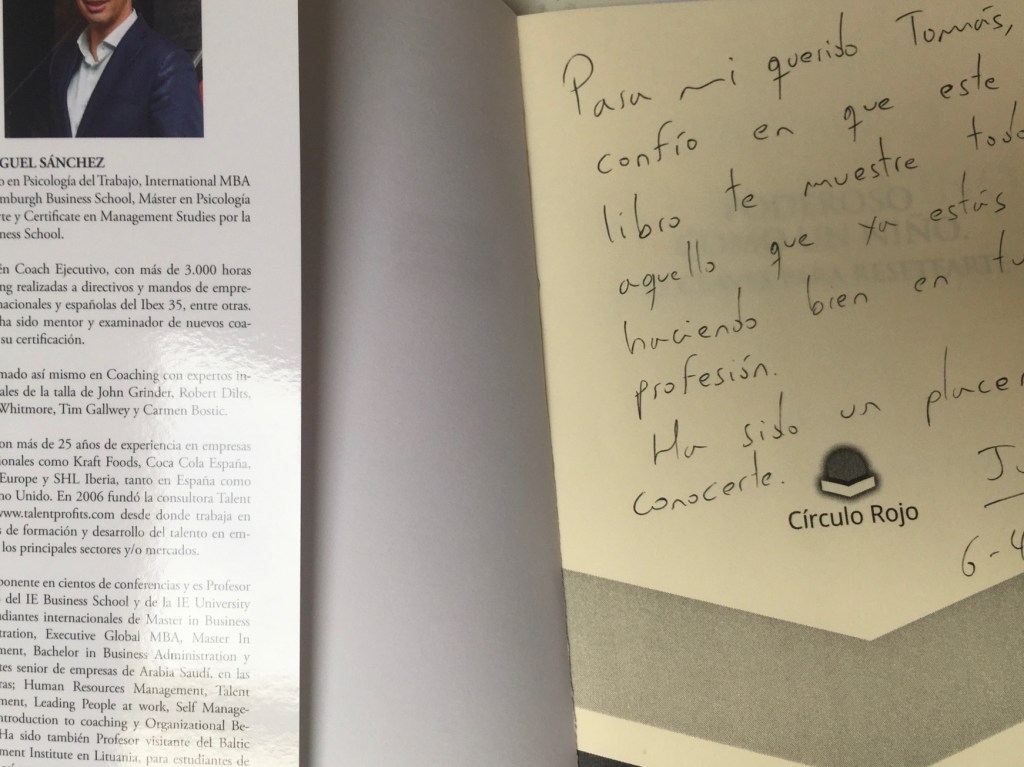 GUEL SÁNCHEZ
o en Psicología del Trabajo, International MBA
mburgh Business School, Máster en Psicología
rte y Certificate en Management Studies por la
ness School.
én Coach Ejecutivo, con más de 3.000 horas
ng realizadas a directivos y mandos de empre-
nacionales y españolas del Ibex 35, entre otras.
ha sido mentor y examinador de nuevos coa-
su certificación.
mado así mismo en Coaching con expertos in-
ales de la talla de John Grinder, Robert Dilts,
Whitmore, Tim Gallwey y Carmen Bostic.
on más de 25 años de experiencia en empresas
ionales como Kraft Foods, Coca Cola España,
Europe y SHL Iberia, tanto en España como
no Unido. En 2006 fundó la consultora Talent
www.talentprofits.com desde donde trabaja en
s de formación y desarrollo del talento en em-
los principales sectores y/o mercados.
ponente en cientos de conferencias y es Profesor
del IE Business School y de la IE University
udiantes internacionales de Master in Business
tration, Executive Global MBA, Master In
ment, Bachelor in Business Administration y
tes senior de empresas de Arabia Saudí, en las
ras; Human Resources Management, Talent
ment, Leading People at work, Self Manage-
ntroduction to coaching y Organizational Be-
Ha sido también Profesor visitante del Baltic
ment Institute en Lituania, para estudiantes de
Para mi querido Tomás,
confío en que este
libro te muestre todo
aquello que ya estás
haciendo bien en tu
profesión.
Ha sido un placer
conocerte.
Círculo Rojo
6-4
PODEROSO
COMO UN NIÑO.
PARA RESETEARTE